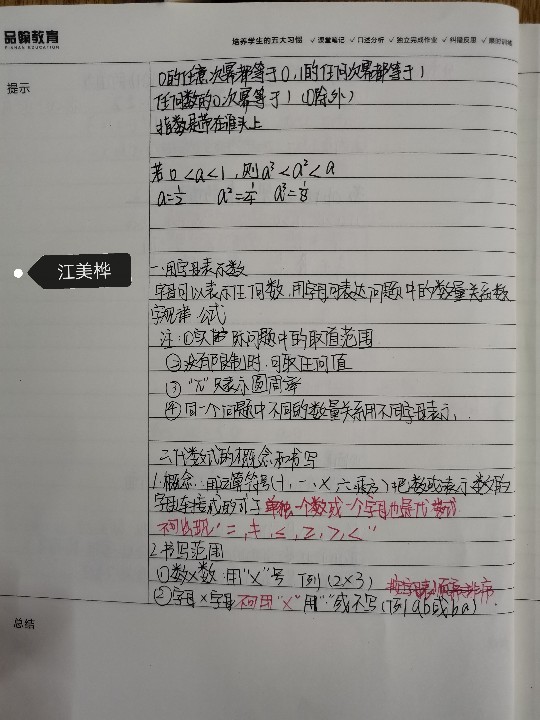 品翰教育
PINHAN EDUCATION
培养学生的五大习惯 ✓课堂笔记 ✓口述分析 ✓独立完成作业 ✓纠错反思 ✓限时训练
提示
0的任意次幂都等于0,1的任何次幂都等于1
任何数的0次幂等于1(0除外)
指数是带在谁头上
若0<a<1,则a³<a²<a
a=1/2 a²=1/4 a³=1/8
江美桦
一.用字母表示数
字母可以表示任何数,用字母可表达问题中的数量关系数
字规律 公式
注:①实际问题中的取值范围
②没有限制时,可取任何值
③"π"只表示圆周率
④同一个问题中不同的数量关系用不同字母表示.
二.代数式的概念和书写
1.概念:用运算符号(+、-、×、÷、乘方)把数或表示数的
字母连接成的式子 单独一个数或一个字母也是代数式
不可出现"=,≠,≤,≥,>,<"
2.书写范围
①数×数:用"×"号 例(2×3) 按字母表顺序排序.
②字母×字母 不可用"×"用"·"或不写(例ab或ba)
总结